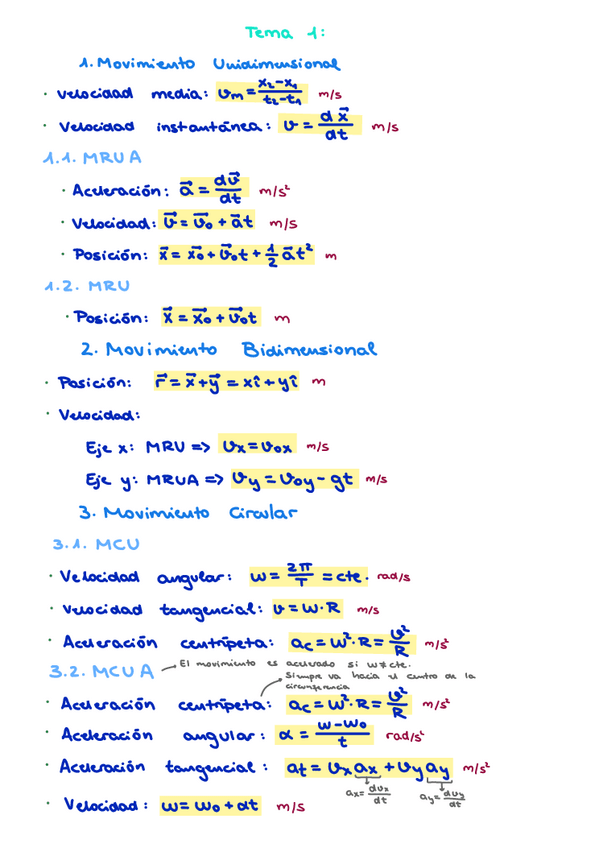 Tema 1:
1. Movimiento Unidimensional
· Velocidad media: vm = x2-x1/t2-t1 m/s
· Velocidad instantánea: v = dx⃗/dt m/s
1.1. MRUA
· Aceleración: a⃗ = dv⃗/dt m/s²
· Velocidad: v⃗ = v⃗o + a⃗t m/s
· Posición: x⃗ = x⃗o + v⃗ot + 1/2 a⃗t² m
1.2. MRU
· Posición: x⃗ = x⃗o + v⃗ot m
2. Movimiento Bidimensional
· Posición: r⃗ = x⃗ + y⃗ = xî + yî m
· Velocidad:
Eje x: MRU => vx = vox m/s
Eje y: MRUA => vy = voy - gt m/s
3. Movimiento Circular
3.1. MCU
· Velocidad angular: w = 2π/T = cte. rad/s
· Velocidad tangencial: v = w·R m/s
· Aceleración centrípeta: ac = w²·R = v²/R m/s²
3.2. MCUA → El movimiento es acelerado si w ≠ cte.
Siempre va hacia el centro de la
circunferencia
· Aceleración centrípeta: ac = w²·R = v²/R m/s²
· Aceleración angular: α = w-wo/t rad/s²
· Aceleración tangencial: at = vx ax + vy ay m/s²
ax = dvx/dt ay = dvy/dt
· Velocidad: w = wo + αt m/s